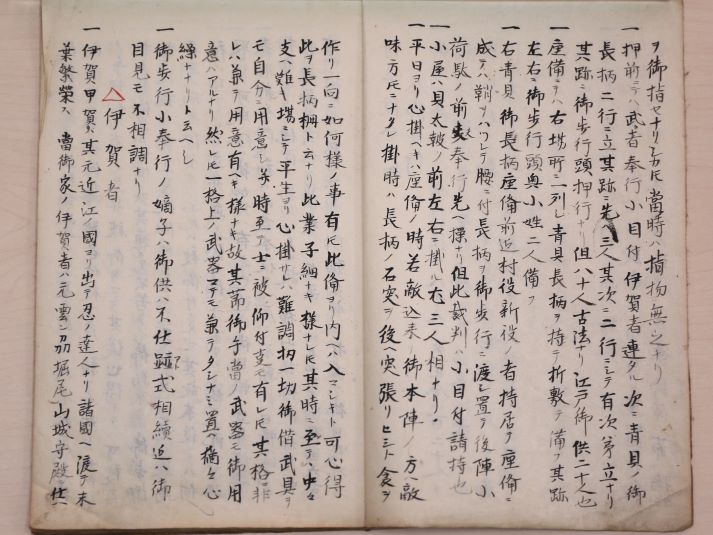 ヲ御指セナリ乍尤當時ハ指物無之ナリ
一押前ニテハ武者奉行小目付伊賀者連タル次ニ青貝ノ御
長柄二行ニ立其跡ニ先三人其次ニ二行ニシテ有次第立ナリ
其跡ニ御歩行頭押行ナリ但八十人古法ナリ江戸御供二十人也
一座備テハ右場所ニ一列シ青貝長柄ヲ持テ折敷テ備フ其跡
左右ニ御歩行頭奥小姓二人備フ
一右青貝御長柄座備前近村役新役ノ者持居テ座備ニ
成テハ鞘ヲハツシテ腰ニ付長柄ヲ御歩行ニ渡シ置テ後陣小
荷駄ノ前奉行先ヘ操ナリ但此裁判ハ小目付請持也
一小屋ハ貝太皷ノ前左右ニ掛ル尤三人相ナリ
一平日ヨリ心掛ヘキハ座備ノ時若敵込来リ御本陣ノ方ヘ敵
味方氏ニナタレ掛時ハ長柄ノ石突ヲ後ヘ突張リヒシト食ヲ
作リ一向ニ如何様ノ事有氏此備ヨリ内ヘハ入マシキト可心得
此ヲ長柄柵ト云ナリ此業子細ナキ様ナレ氏其時ニ至テハ中々
支ヘ難キ場ニシテ平生ヨリ心掛サレハ難調扨一切御借武具ヲ
モ自分ニ用意シ若時至テ士ニ被仰付叓モ有レ氏其格非
レハ兼テ用意有ヘキ様ナキ故其節御手當ノ武器モ御用
意ハアルナリ然レ氏一格上ノ武器マテモ兼テタシナミ置ヘ橋々心
繰ナリト云ヘシ
一御歩行小奉行ノ嫡子ハ御供ハ不仕跡式相續近ハ御
目見モ不相調ナリ
△伊賀者
一伊賀甲賀ハ其元近江ノ國ヨリ出テ忍ノ達人ナリ諸國ヘ渡テ末
葉繁榮ス當御家ノ伊賀者ハ元雲刕堀尾山城守殿ニ仕ヘ